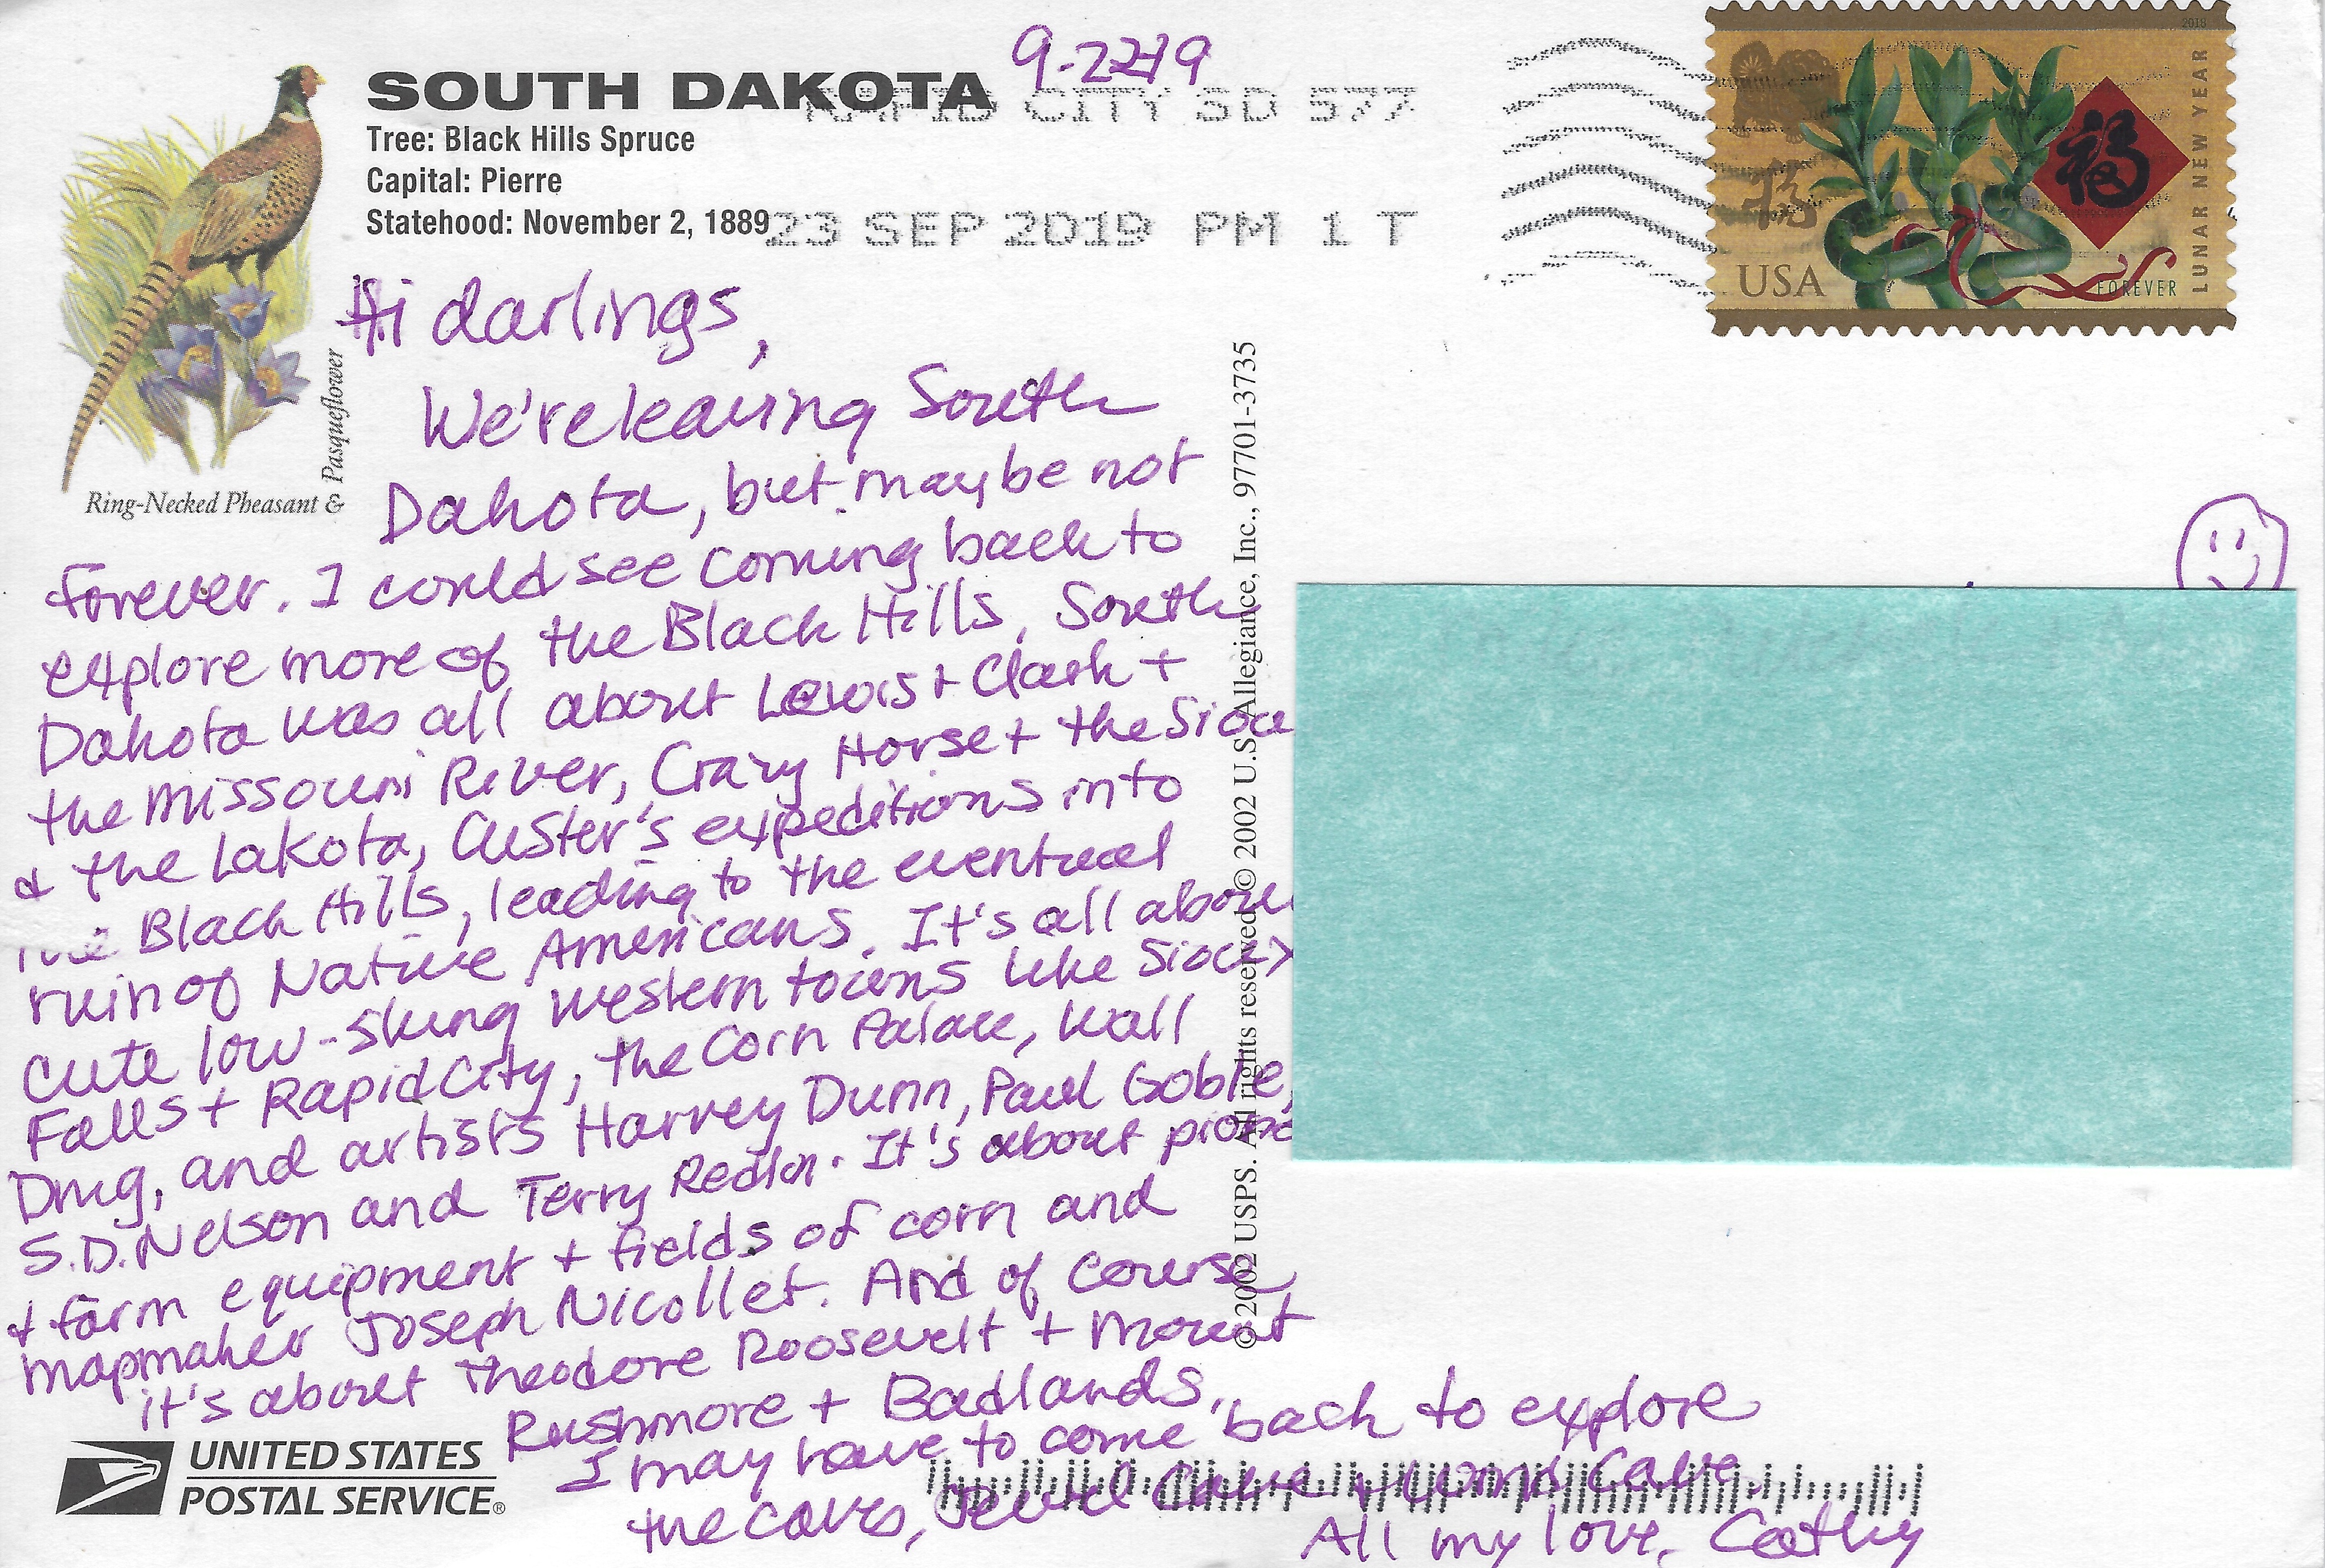 9-22-19
SOUTH DAKOTA
Tree: Black Hills Spruce
Capital: Pierre
Statehood: November 2, 1889
RAPID CITY SD 577
23 SEP 2019 PM 1 T
2018
福
福
LUNAR NEW YEAR
USA
FOREVER
Ring-Necked Pheasant & Pasqueflower
Hi darlings,
We're leaving South
Dakota, but maybe not
forever. I could see coming back to
explore more of the Black Hills. South
Dakota was all about Lewis + Clark +
the Missouri River, Crazy Horse + the Sioux
& the Lakota, Custer's expeditions into
the Black Hills, leading to the eventual
ruin of Native Americans. It's all about
cute low-slung western towns like Sioux
Falls + Rapid City, the Corn Palace, Wall
Drug, and artists Harvey Dunn, Paul Goble,
S.D. Nelson and Terry Redlin. It's about
& farm equipment + fields of corn and
mapmaker Joseph Nicollet. And of course
it's about Theodore Roosevelt + Mount
Rushmore + Badlands.
I may have to come back to explore
the caves, Jewel Cave + Wind Cave.
All my love, Cathy
© 2002 USPS. All rights reserved © 2002 U.S. Allegiance, Inc., 97701-3735
UNITED STATES
POSTAL SERVICE®